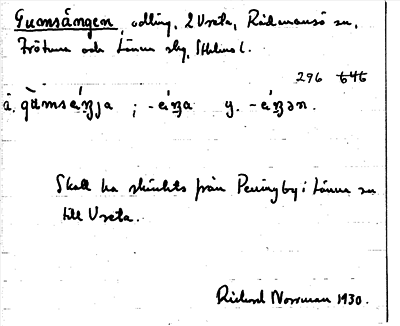 Gumsängen, odling, 2 Vreta, Rådmansö sn,
Frötuna och Länna slg, Sthlms l.
296 646
å. gùmsáŋja ; -éŋa y. -éŋən.
Skall ha skänkts från Penningby i Länna sn
till Vreta.
Richard Norrman 1930.